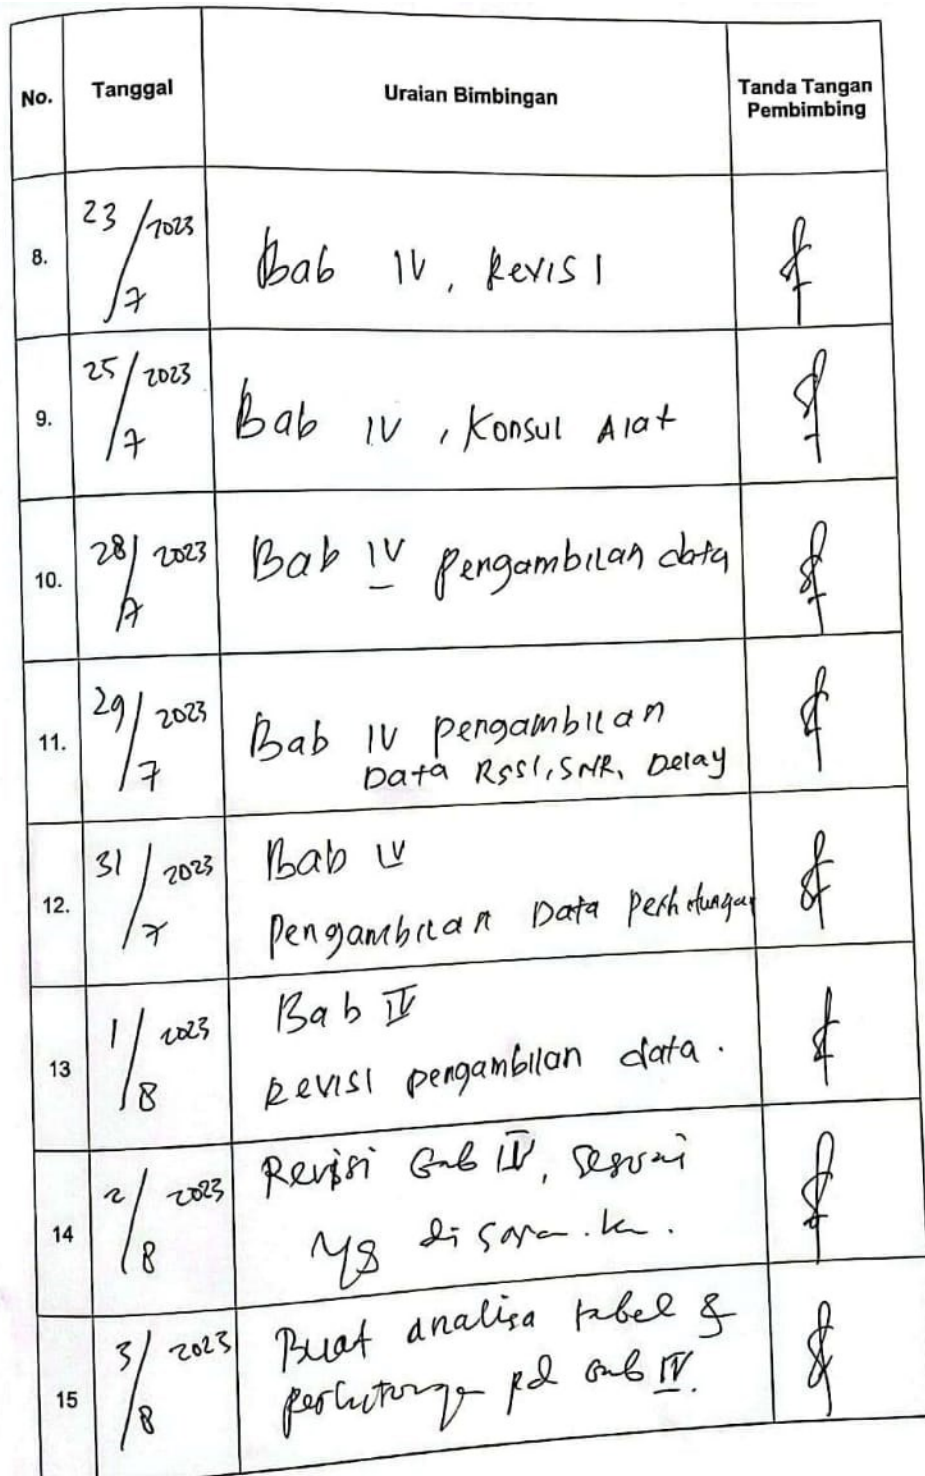 No. Tanggal Uraian Bimbingan Tanda Tangan
Pembimbing
8. 23/7 2023 Bab IV, Revisi
9. 25/7 2023 Bab IV, Konsul Alat
10. 28/7 2023 Bab IV pengambilan data
11. 29/7 2023 Bab IV pengambilan
Data RSSI, SNR, Delay
12. 31/7 2023 Bab IV
Pengambilan Data perhitungan
13 1/8 2023 Bab IV
Revisi pengambilan data.
14 2/8 2023 Revisi Bab IV, sesuai
yg disarankan.
15 3/8 2023 Buat analisa tabel &
perhitungan pd bab IV.